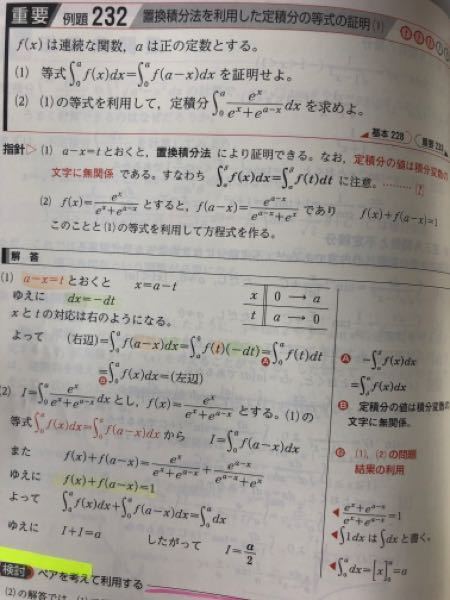 重要 例題 232 置換積分法を利用した定積分の等式の証明 (1)
f(x) は連続な関数, a は正の定数とする。
(1) 等式∫₀ᵃf(x)dx=∫₀ᵃf(a-x)dx を証明せよ。
(2) (1)の等式を利用して, 定積分∫₀ᵃ eˣ/(eˣ+eᵃ⁻ˣ) dx を求めよ。
基本 228
指針▷ (1) a-x=t とおくと, 置換積分法 により証明できる。なお, 定積分の値は積分変数の
文字に無関係 である。すなわち
に注意。………
(2) f(x)=eˣ/(eˣ+eᵃ⁻ˣ) とすると, f(a-x)=eᵃ⁻ˣ/(eᵃ⁻ˣ+eˣ) であり f(x)+f(a-x)=1
このことと(1)の等式を利用して方程式を作る。
解答
(1) a-x=t とおくと x=a-t
ゆえに dx=-dt
x 0 → a
t a → 0
x と t の対応は右のようになる。
よって (右辺)=∫₀ᵃf(a-x)dx=∫ₐ⁰f(t)(-dt)=∫₀ᵃf(t)dt
A
=∫₀ᵃf(x)dx=(左辺)
B
(2) I=∫₀ᵃ eˣ/(eˣ+eᵃ⁻ˣ) dx とし, f(x)=eˣ/(eˣ+eᵃ⁻ˣ) とする。(1)の
等式∫₀ᵃf(x)dx=∫₀ᵃf(a-x)dx から I=∫₀ᵃf(a-x)dx
また f(x)+f(a-x)=eˣ/(eˣ+eᵃ⁻ˣ)+eᵃ⁻ˣ/(eᵃ⁻ˣ+eˣ)
ゆえに f(x)+f(a-x)=1
よって ∫₀ᵃf(x)dx+∫₀ᵃf(a-x)dx=∫₀ᵃdx
ゆえに I+I=a したがって I=a/2
B 定積分の値は積分変数の
文字に無関係。
(1), (2) の問題
結果の利用
◀ eˣ+eᵃ⁻ˣ/eˣ+eᵃ⁻ˣ=1
◀∫1dx は∫dx と書く。
◀∫₀ᵃdx=[x]₀ᵃ=a
検討 ペアを考えて利用する
(2)の解答では,